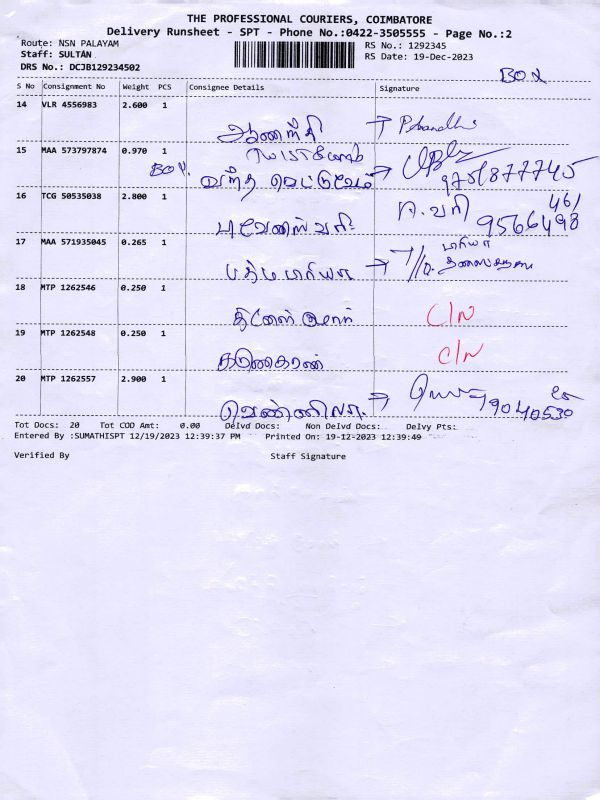 THE PROFESSIONAL COURIERS, COIMBATORE
Delivery Runsheet - SPT - Phone No.:0422-3505555 - Page No.:2
Route: NSN PALAYAM RS No.: 1292345
Staff: SULTAN RS Date: 19-Dec-2023
DRS No.: DCJB129234502
BOX
S No Consignment No Weight PCS Consignee Details Signature
14 VLR 4556983 2.600 1
ஆனந்தி →
15 MAA 573797874 0.970 1
BOX →
16 TCG 50535038 2.800 1
புவனேஸ்வரி
17 MAA 571935045 0.265 1
→
18 MTP 1262546 0.250 1
தினேஷ் குமார் C/N
19 MTP 1262548 0.250 1
கருணாகரன் C/N
20 MTP 1262557 2.900 1
வெண்ணிலா →
Tot Docs: 20 Tot COD Amt: 0.00 Delvd Docs: Non Delvd Docs: Delvy Pts:
Entered By :SUMATHISPT 12/19/2023 12:39:37 PM Printed On: 19-12-2023 12:39:49
Verified By Staff Signature